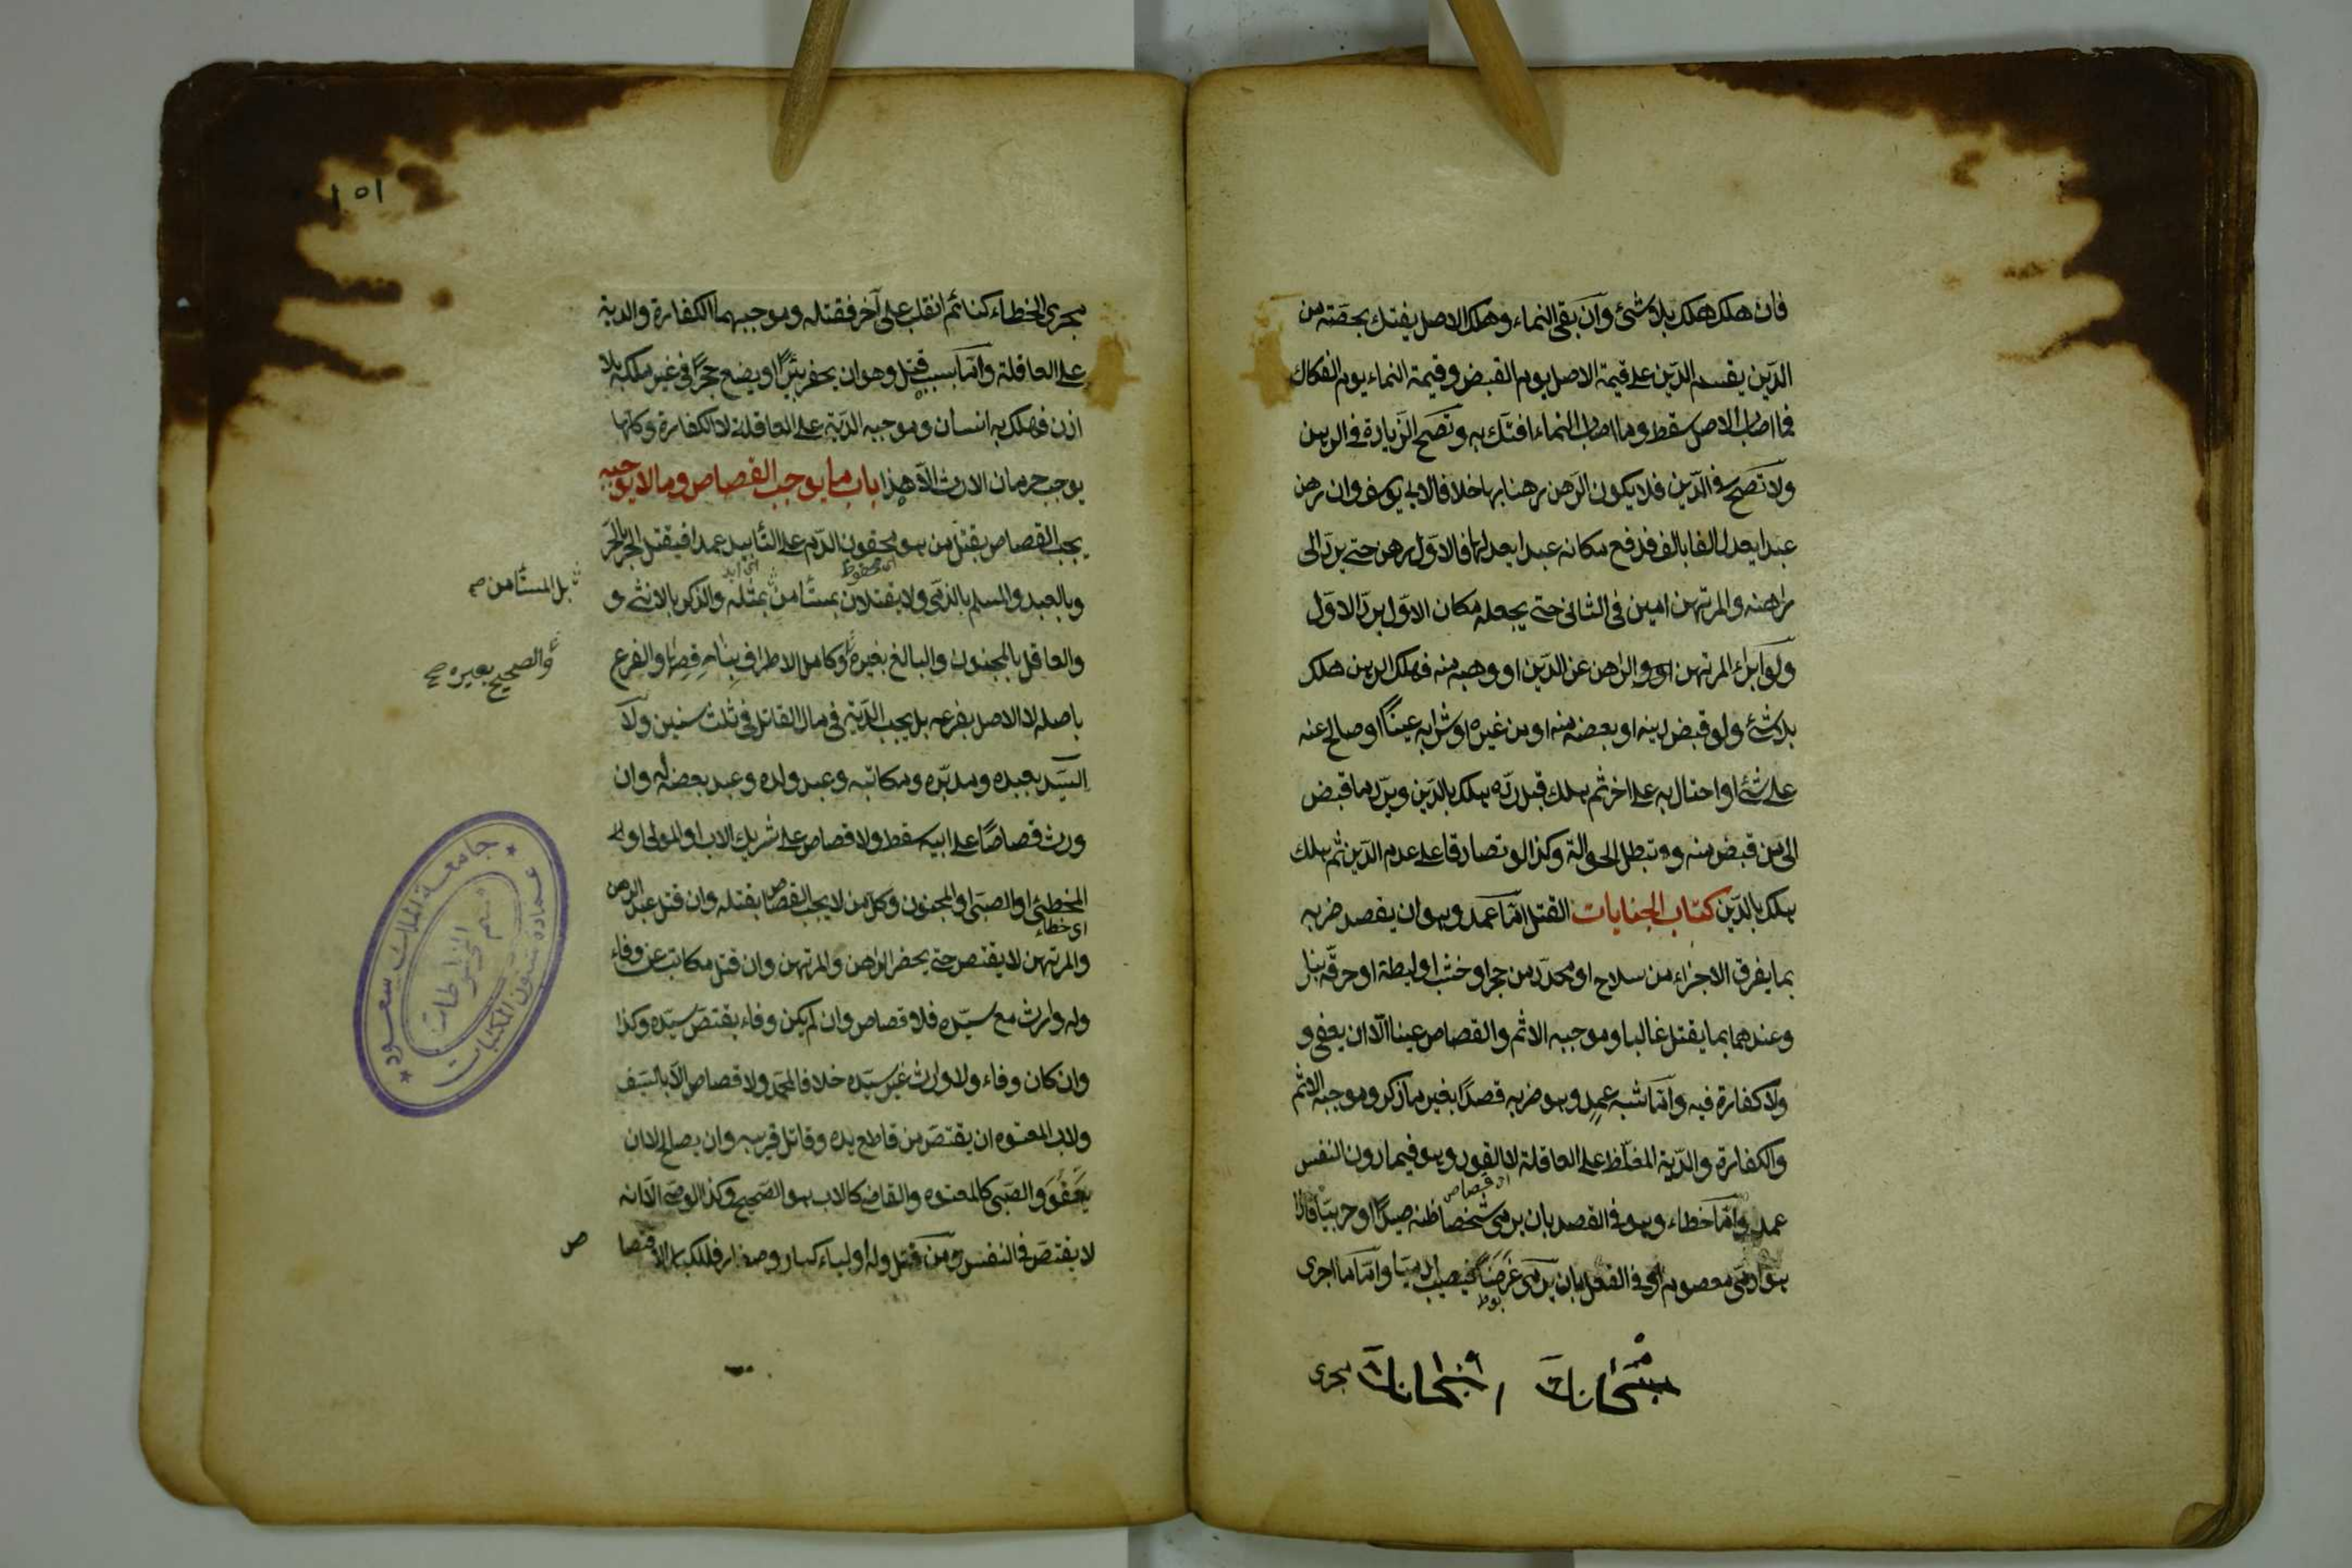 فان هلك هلك بلا شئ وان بقى النماء وهلك الاصل يفتك بحصته من
الدّين يقسم الدّين على قيمة الاصل يوم القبض وقيمة النماء يوم الفكاك
فما اصاب الاصل سقط وما اصاب النماء افتك به وتصح الزيادة في الرهن
ولا تصح في الدّين فلا يكون الرهن رهنا بها خلافا لابى يوسف وان رهن
عبدا يعدل الفا بالف فدفع مكانه عبدا يعدلها فالاول رهن حتى يردّ الى
راهنه والمرتهن امين في الثانى حتى يجعله مكان الاوّل بردّ الاوّل
ولو ابراء المرتهن الراهن عن الدّين او وهبه منه فهلك الرهن هلك
بلا شئ ولو قبض دينه او بعضه منه او من غيره او شرا به عينًا او صالح عنه
على شئ او احتال به على اخر ثم هلك قبل ردّه هلك بالدّين ويردّ ما قبض
الى من قبض منه وتبطل الحوالة وكذا لو تصادقا على عدم الدّين ثم هلك
يهلك بالدّين كتاب الجنايات القتل امّا عمد وهو ان يقصد ضربه
بما يفرق الاجزاء من سلاح او محدّد من حجر او خشب او ليطة او حرقه بنار
وعندهما بما يقتل غالبا وموجبه الاثم والقصاص عينا الّا ان يعفى و
ولا كفارة فيه وامّا شبه عمد وهو ضربه قصدًا بغير ما ذكر وموجبه الاثم
والكفارة والدّية المغلّظة على العاقلة لا القود وهو فيما دون النفس
اى قصاص
عمد وامّا خطاء وهو في القصد بان يرمى شخصا ظنه صيدًا او حربيّا فاذا
هو ادمّى معصوم او في الفعل بان يرمى غرضًا فيصيب ادميّا وامّا ما اجرى
مجرى
١٥١
مجرى الخطاء كنائم انقلب على آخر فقتله وموجبهما الكفارة والدية
على العاقلة وامّا بسبب قتل وهو ان يحفر بئرًا او يضع حجرًا في غير ملكه بلا
اذن فهلك به انسان وموجبه الدّية على العاقلة لا الكفارة وكلها
يوجب حرمان الارث الّا هذا باب ما يوجب القصاص وما لا يوجبه
يجب القصاص بقتل من هو محقون الدّم على التأبيد عمدا فيقتل الحر بالحرّ
اى محفوظ
وبالعبد والمسلم بالذمّى ولا يقتلان بمستأمن بمثله والذكر بالانثى و
بل المستأمن صح
والعاقل بالمجنون والبالغ بغيره وكامل الاطراف بناقصها والفرع
والصحيح بغيره صح
باصله لا الاصل بفرعه بل يجب الدّية في مال القاتل في ثلث سنين ولا
السيّد بعبده ومدبّره ومكاتبه وعبد ولده وعبد بعضه له وان
ورث قصاصًا على ابيه سقط ولا قصاص على شريك الاب او المولى او
المخطئ او الصبى او المجنون وكل من لا يجب القصاص بقتله وان قتل عبد الرهن
اى خطاء
والمرتهن لا يقتص حتى يحضر الراهن والمرتهن وان قتل مكاتب عن وفاء
وله وارث مع سيّده فلا قصاص وان لم يكن وفاء يقتصّ سيّده وكذا
وان كان وفاء ولا وارث غير سيّده خلافا لمحمد ولا قصاص الّا بالسّيف
ولاب المعتوه ان يقتصّ من قاطع يده وقاتل قريبه وان يصالح لا ان
يعفو والصّبى كالمعتوه والقاضى كالاب هو الصحيح وكذا الوصى الّا انه
لا يقتصّ في النفس ومن قتل وله اولياء كبار وصغار فللكبار الاقتصا
ص
جامعة الملك سعود
عمادة شئون المكتبات
قسم المخطوطات